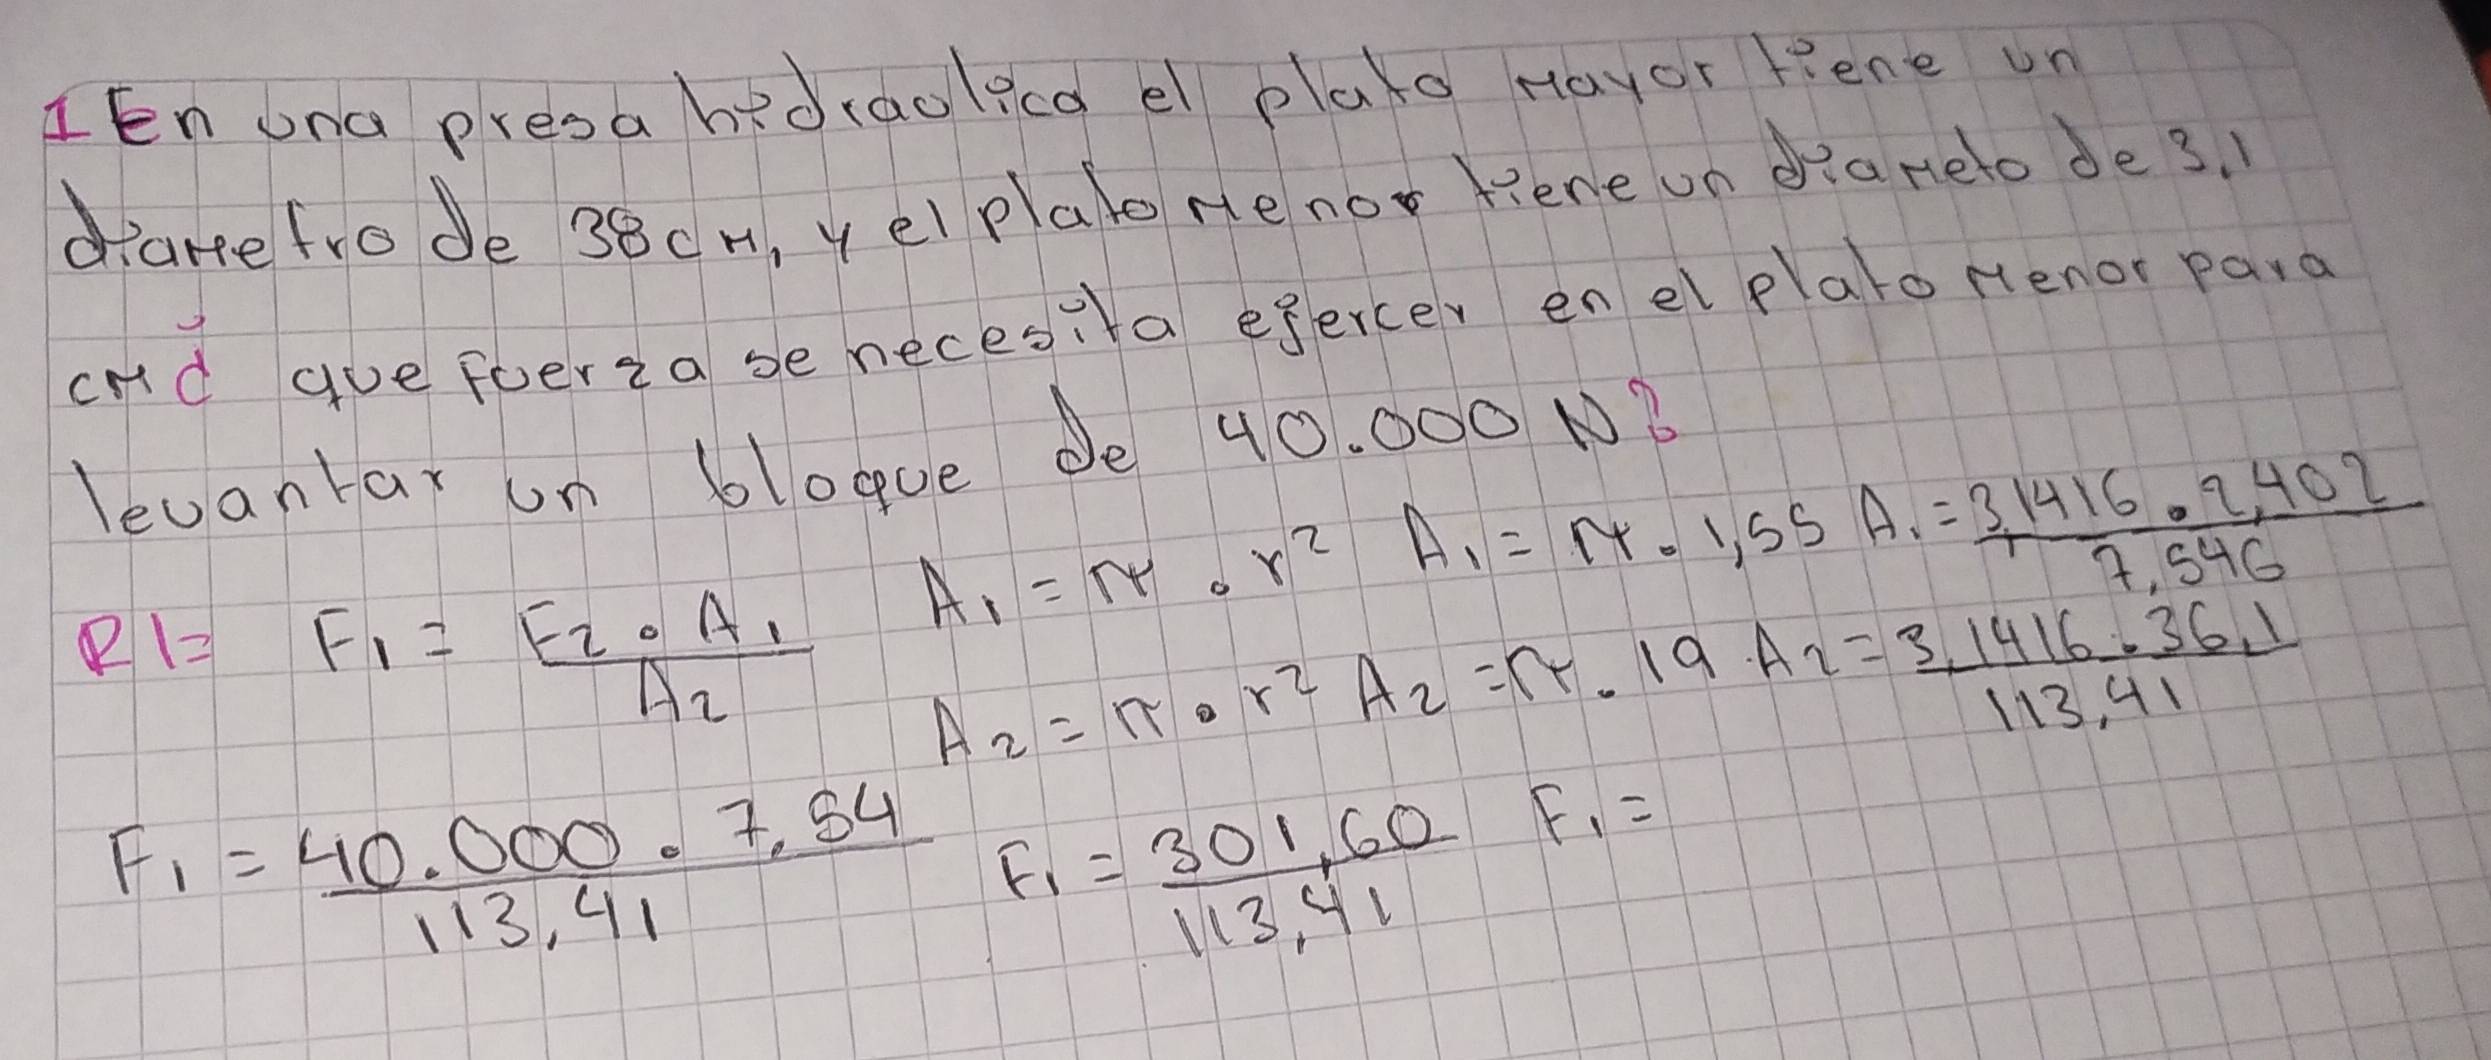 1 En una presa hidraulica el plato mayor tiene un
diametro de 38 cm, y el plato menor tiene un diameto de 3,1
cm ¿ que fuerza se necesita ejercer en el plato menor para
levantar un bloque de 40.000 N?
R1= F₁ = F₂ • A₁ / A₂ A₁ = π • r² A₁ = π • 1,55 A₁ = 3,1416 • 2,402 / 7,546
A₂ = π • r² A₂ = π • 19 A₂ = 3,1416 • 36,1 / 113,41
F₁ = 40.000 • 7,54 / 113,41 F₁ = 301,60 / 113,41 F₁ =